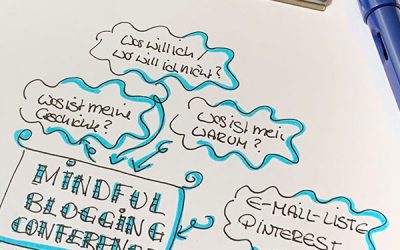 Was will ich /
wo will ich nicht?
Was ist meine
Geschichte?
Was ist mein
WARUM?
MINDFUL
BLOGGING
CONFERENCE
E-MAIL-LISTE
PINTEREST